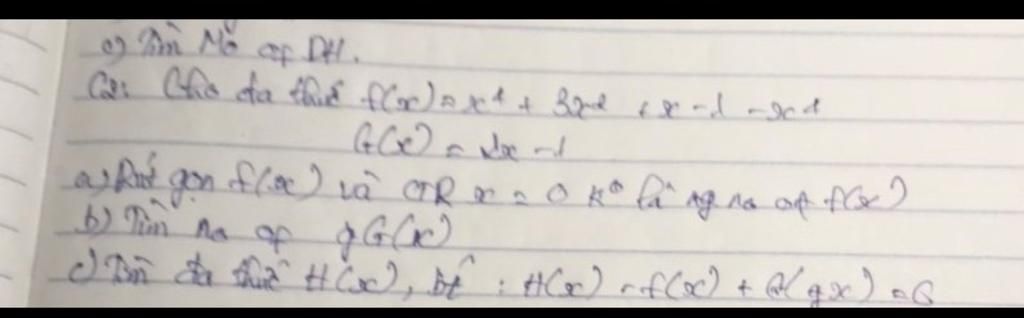 c) Tìm Mổ of DH.
C2: Cho đa thức f(x) = x⁴ + 3x² + x - 1 - x⁴
G(x) = 2x - 1
a) Rút gọn f(x) và CTR x = 0 k⁰ là ng no of f(x)
b) Tìm no of g G(x)
c) Tìm đa thức H(x), bt : H(x) - f(x) + G(gx) = 6